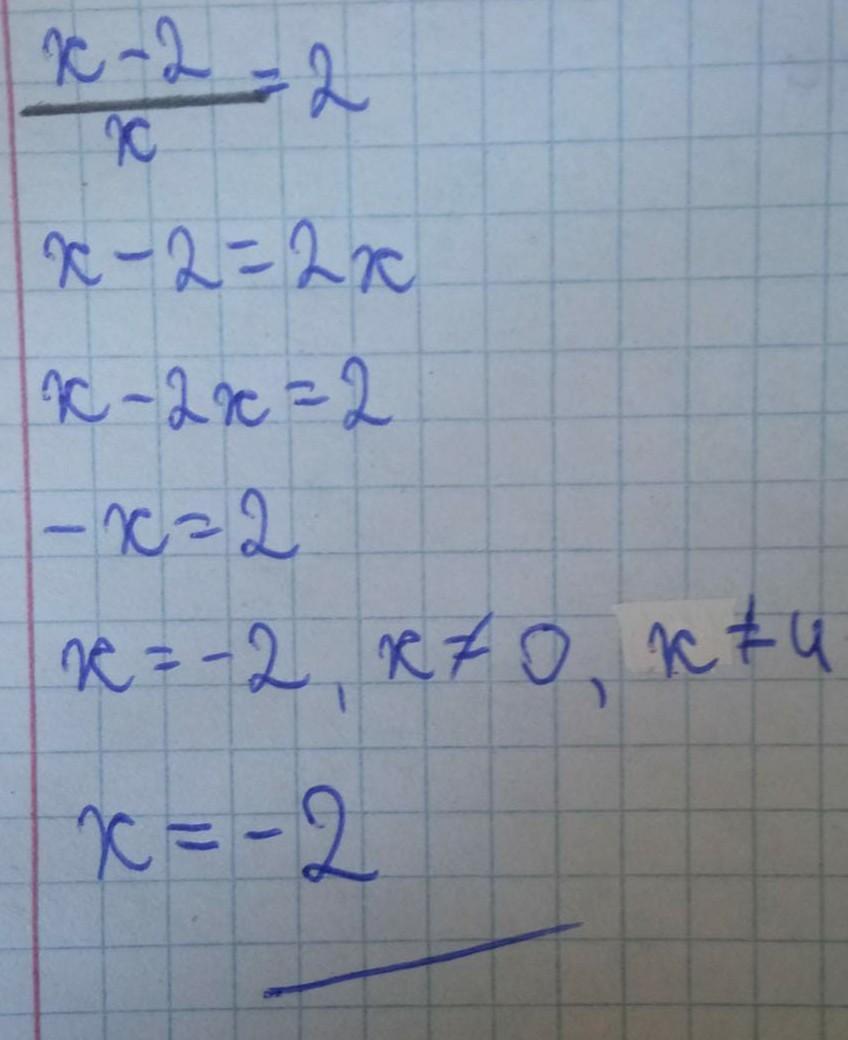 x-2
x = 2
x-2=2x
x-2x=2
-x=2
x=-2, x≠0, x≠4
x=-2